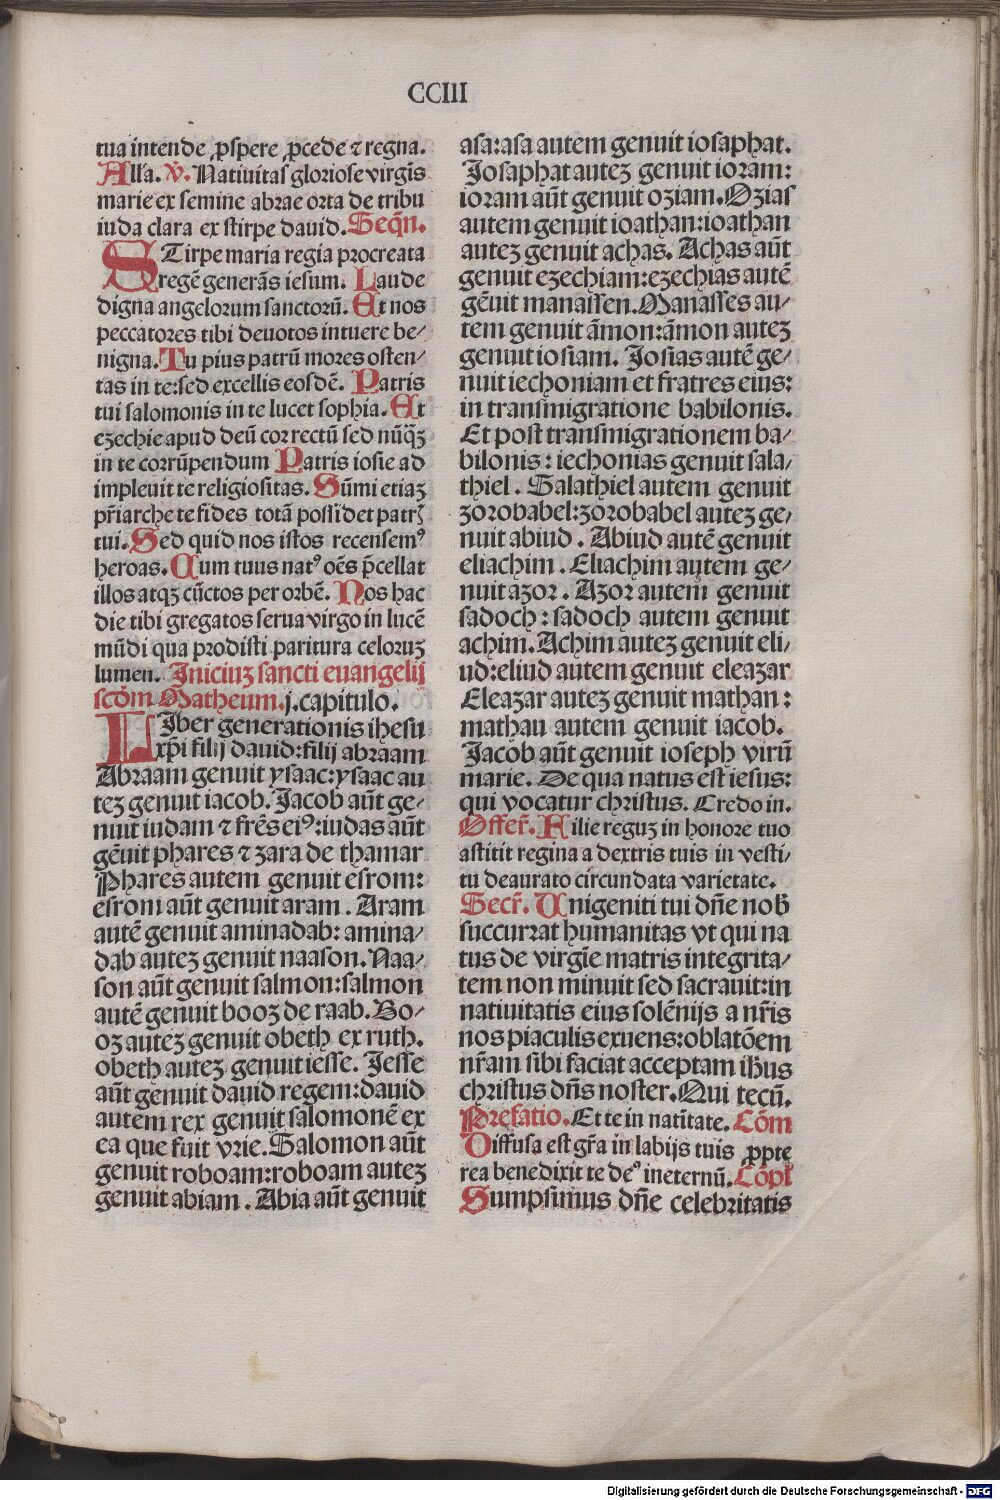 CCIII
tua intende ꝓspere ꝓcede ⁊ regna.
Alľa. ℣. Natiuitas gloriose virgis
marie ex semine abrae orta de tribu
iuda clara ex stirpe dauid. Seqn̄.
STirpe maria regia procreata
regē generās iesum. Laude
digna angelorum sanctorū. Et nos
peccatores tibi deuotos intuere be⸗
nigna. Tu pius patrū mores osten⸗
tas in te: sed excellis eosdē. Patris
tui salomonis in te lucet sophia. Et
ezechie apud deū correctū sed nūqꝫ
in te corrūpendum Patris iosie ad
impleuit te religiositas. Sūmi etiaꝫ
pr̄iarche te fides totā possidet patrꝫ
tui. Sed quid nos istos recensemꝰ
heroas. Cum tuus natꝰ oēs p̄cellat
illos atqꝫ cūctos per orbē. Nos hac
die tibi gregatos serua virgo in lucē
mūdi qua prodisti paritura celoruꝫ
lumen. Iniciuꝫ sancti euangelij
scďm Matheum. j. capitulo.
LIber generationis ihesu
xp̄i filij dauid: filij abraam
Abraam genuit ysaac: ysaac au
teꝫ genuit iacob. Jacob aūt ge⸗
nuit iudam ⁊ frēs eiꝰ: iudas aūt
gēuit phares ⁊ zara de thamar
Phares autem genuit esrom:
esrom aūt genuit aram. Aram
autē genuit aminadab: amina⸗
dab auteꝫ genuit naason. Naa⸗
son aūt genuit salmon: salmon
autē genuit booz de raab. Bo⸗
oz auteꝫ genuit obeth ex ruth.
obeth auteꝫ genuit iesse. Jesse
aūt genuit dauid regem: dauid
autem rex genuit salomonē ex
ea que fuit vrie. Salomon aūt
genuit roboam: roboam auteꝫ
genuit abiam. Abia aūt genuit
asa: asa autem genuit iosaphat.
Josaphat auteꝫ genuit ioram:
ioram aūt genuit oziam. Ozias
autem genuit ioathan: ioathan
auteꝫ genuit achas. Achas aūt
genuit ezechiam: ezechias autē
gēuit manassen. Manasses au⸗
tem genuit āmon: āmon auteꝫ
genuit iosiam. Josias autē ge⸗
nuit iechoniam et fratres eius:
in transmigratione babilonis.
Et post transmigrationem ba⸗
bilonis: iechonias genuit sala⸗
thiel. Salathiel autem genuit
zorobabel: zorobabel auteꝫ ge⸗
nuit abiud. Abiud autē genuit
eliachim. Eliachim autem ge⸗
nuit azor. Azor autem genuit
sadoch: sadoch autem genuit
achim. Achim auteꝫ genuit eli⸗
ud: eliud autem genuit eleazar
Eleazar auteꝫ genuit mathan:
mathau autem genuit iacob.
Jacob aūt genuit ioseph virū
marie. De qua natus est iesus:
qui vocatur christus. Credo in.
Offer̄. Filie reguꝫ in honore tuo
astitit regina a dextris tuis in vesti⸗
tu deaurato circundata varietate.
Secr̄. Unigeniti tui dn̄e nob̄
succurrat humanitas vt qui na
tus de virgīe matris integrita⸗
tem non minuit sed sacrauit: in
natiuitatis eius solēnijs a nr̄is
nos piaculis exuens: oblatōem
nr̄am sibi faciat acceptam ih̄us
christus dn̄s noster. Qui tecū.
Prefatio. Et te in natītate. Cōm
Diffusa est gr̄a in labijs tuis ꝓpte
rea benedixit te deꝰ ineternū. Cōpl
Sumpsimus dn̄e celebritatis
Digitalisierung gefördert durch die Deutsche Forschungsgemeinschaft - DFG